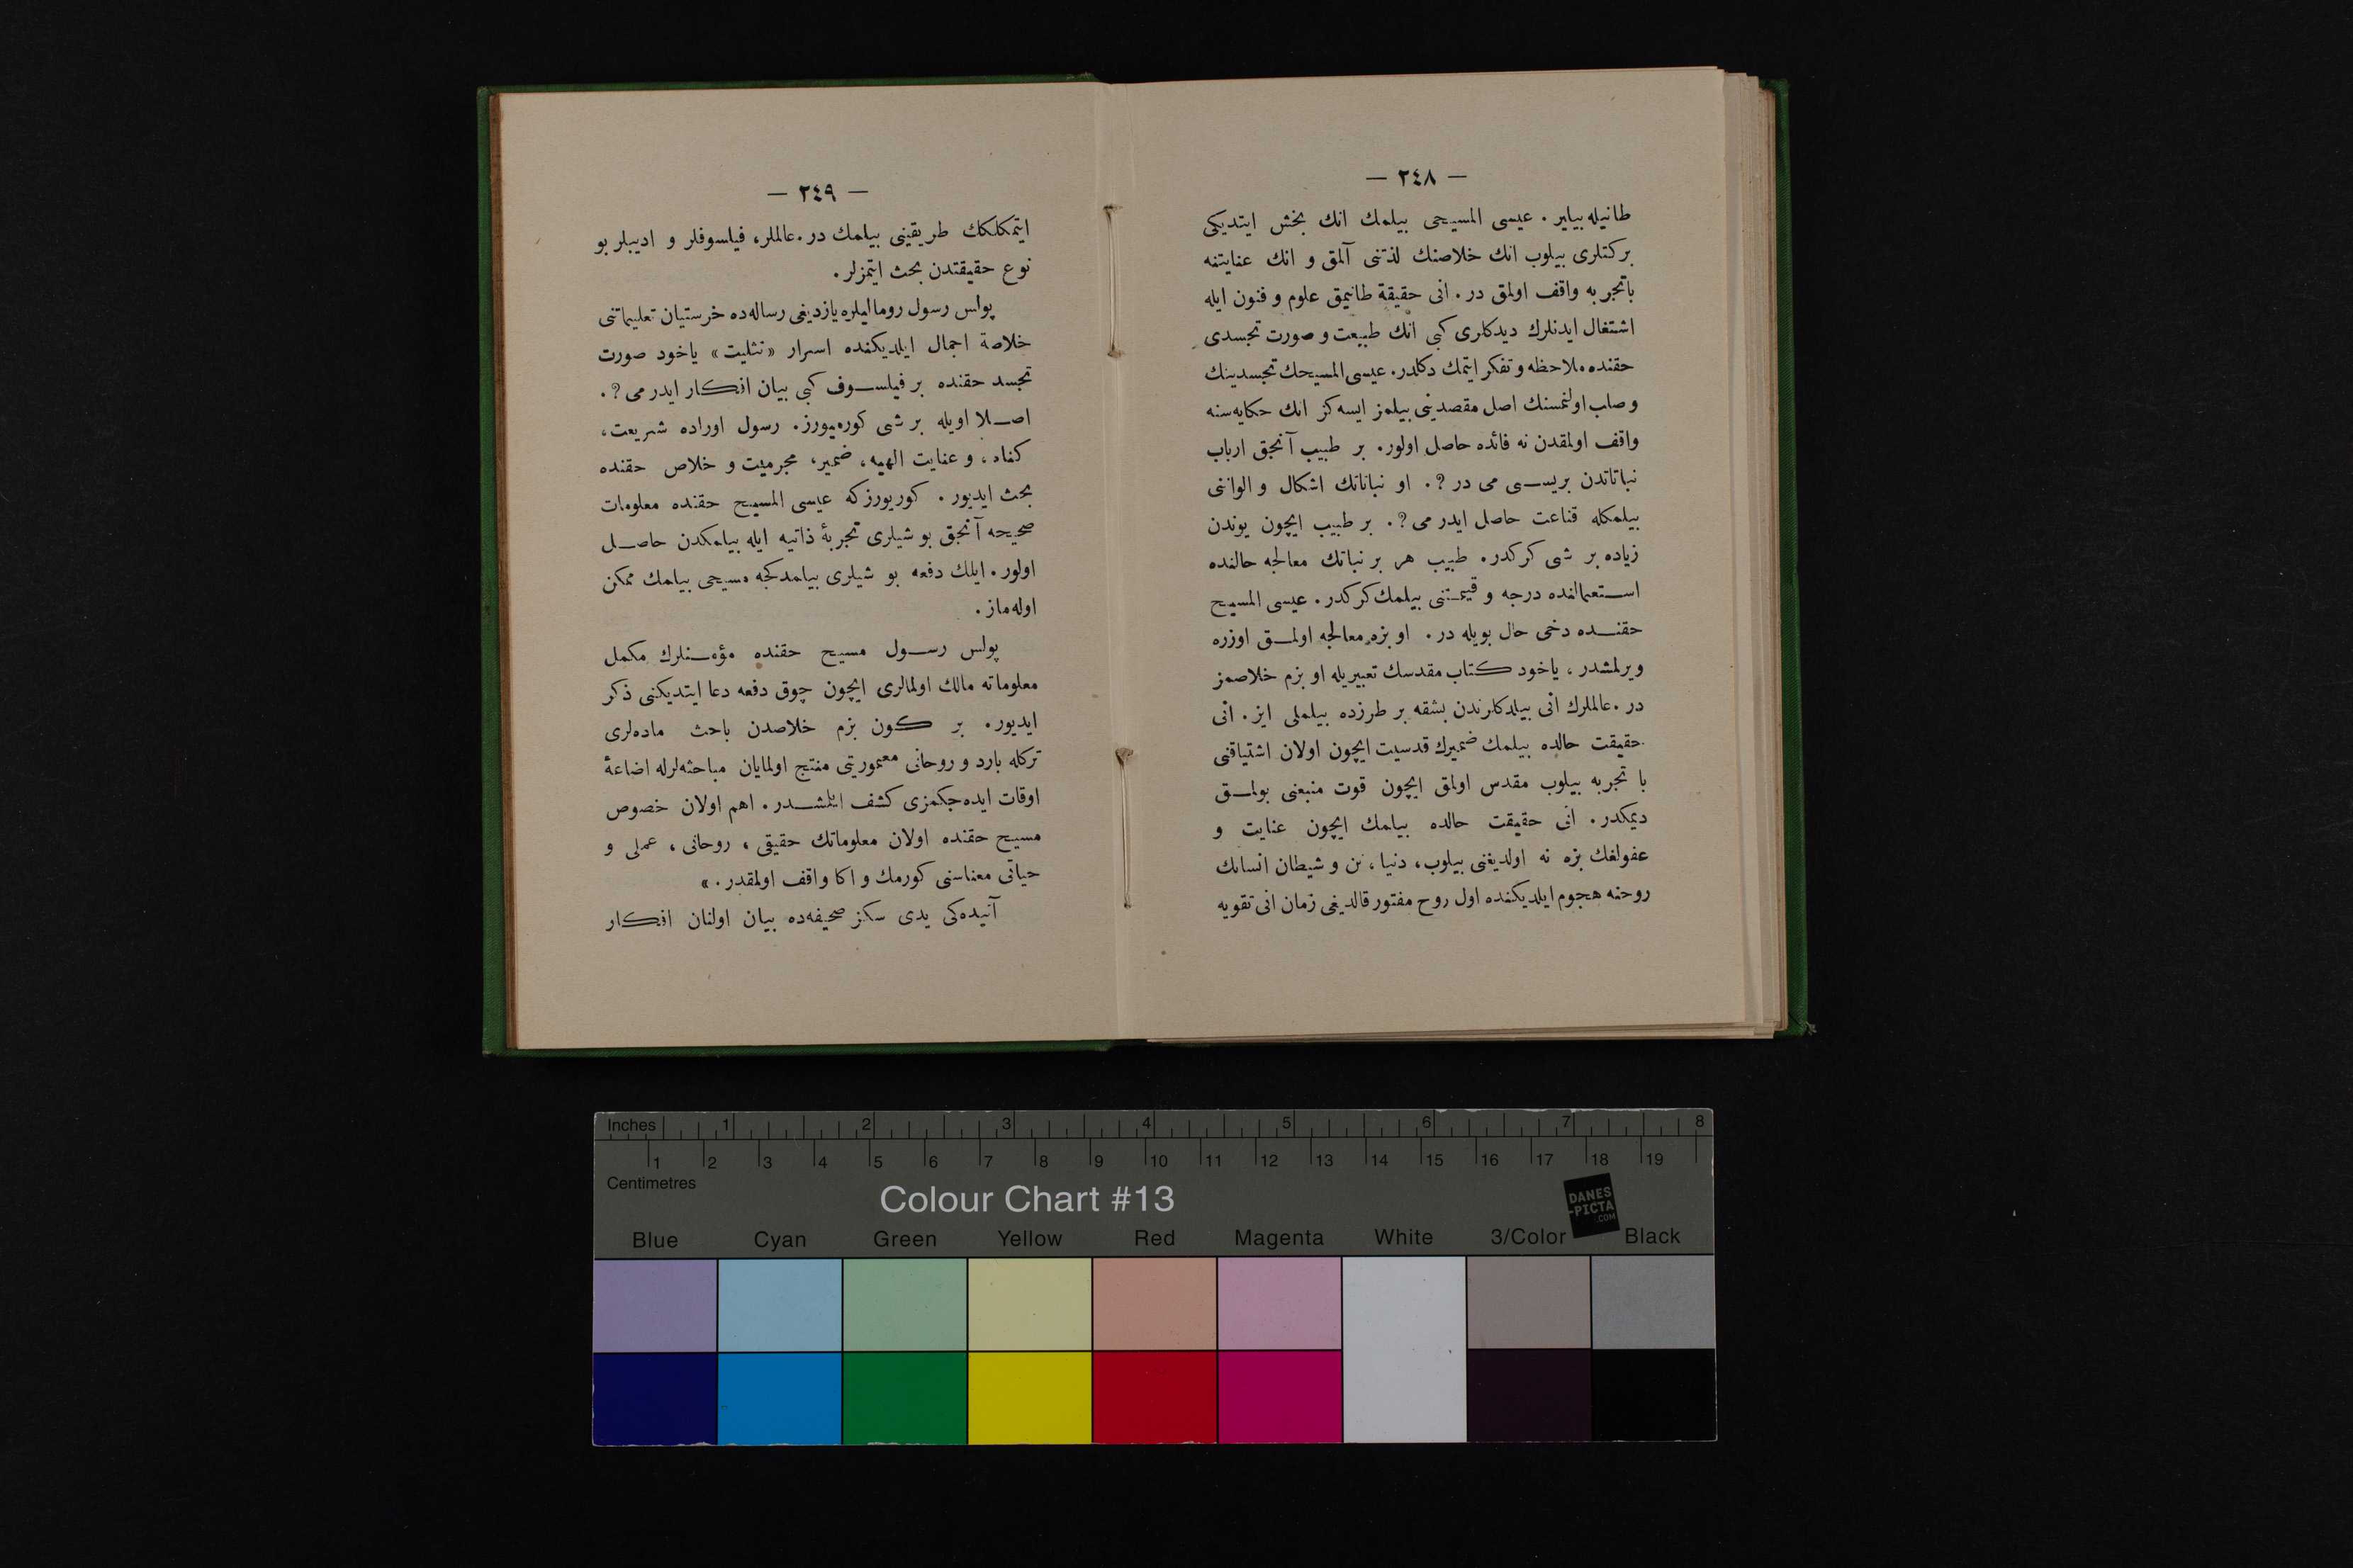 — ٢٤٨ —
طانيله بيلير . عيسى المسيحى بيلمك انك بخش ايتديكى
بركتلرى بيلوب انك خلاصنك لذتنى آلمق و انك عنايتنه
باتجربه واقف اولمق در . انى حقيقة طانيمق علوم و فنون ايله
اشتغال ايدنلرك ديدكلرى كبى انك طبيعت و صورت تجسدى
حقنده ملاحظه و تفكر ايتمك دكلدر . عيسى المسيحك تجسدينك
و صلب اولنمسنك اصل مقصدينى بيلمز ايسه كز انك حكايه سنه
واقف اولمقدن نه فائده حاصل اولور . بر طبيب آنجق ارباب
نباتاتدن بريسى مى در ؟ . او نباتاتك اشكال و الواننى
بيلمكله قناعت حاصل ايدر مى ؟ . بر طبيب ايچون بوندن
زياده بر شى كركدر . طبيب هر بر نباتك معالجه حالنده
استعمالنده درجه و قيمتنى بيلمك كركدر . عيسى المسيح
حقنده دخى حال بويله در . او بزه معالجه اولمق اوزره
ويرلمشدر ، ياخود كتاب مقدسك تعبيريله او بزم خلاصمز
در . عالملرك انى بيلدكلرندن بشقه بر طرزده بيلملى ايز . انى
حقيقت حالده بيلمك ضميرك قدسيت ايچون اولان اشتياقنى
با تجربه بيلوب مقدس اولمق ايچون قوت منبعنى بولمق
ديمكدر . انى حقيقت حالده بيلمك ايچون عنايت و
عفولغك بزه نه اولديغنى بيلوب ، دنيا ، تن و شيطان انسانك
روحنه هجوم ايلديكنده اول روح مفتور قالديغى زمان انى تقويه
— ٢٤٩ —
ايتمكلكك طريقينى بيلمك در . عالملر ، فيلسوفلر و اديبلر بو
نوع حقيقتدن بحث ايتمزلر .
پولس رسول روماليلره يازديغى رساله ده خرستيان تعليماتنى
خلاصة اجمال ايلديكنده اسرار « تثليت » ياخود صورت
تجسد حقنده بر فيلسوف كبى بيان افكار ايدر مى ؟ .
اصلا اويله بر شى كوره ميورز . رسول اوراده شريعت ،
كناه ، و عنايت الهيه ، ضمير ، مجرميت و خلاص حقنده
بحث ايديور . كوريورز كه عيسى المسيح حقنده معلومات
صحيحه آنجق بو شيلرى تجربهٔ ذاتيه ايله بيلمكدن حاصل
اولور . ايلك دفعه بو شيلرى بيلمدكجه مسيحى بيلمك ممكن
اوله ماز .
پولس رسول مسيح حقنده مؤمنلرك مكمل
معلوماته مالك اولمالرى ايچون چوق دفعه دعا ايتديكنى ذكر
ايديور . بر كون بزم خلاصدن باحث ماده لرى
تركله بارد و روحانى معموريتى منتج اولمايان مباحثه لرله اضاعهٔ
اوقات ايده جكمزى كشف ايتمشدر . اهم اولان خصوص
مسيح حقنده اولان معلوماتك حقيقى ، روحانى ، عملى و
حياتى معناسنى كورمك و اكا واقف اولمقدر . »
آتيده كى يدى سكز صحيفه ده بيان اولنان افكار
Inches 1 2 3 4 5 6 7 8
1 2 3 4 5 6 7 8 9 10 11 12 13 14 15 16 17 18 19
Centimetres
Colour Chart #13
DANES
-PICTA
.COM
Blue Cyan Green Yellow Red Magenta White 3/Color Black